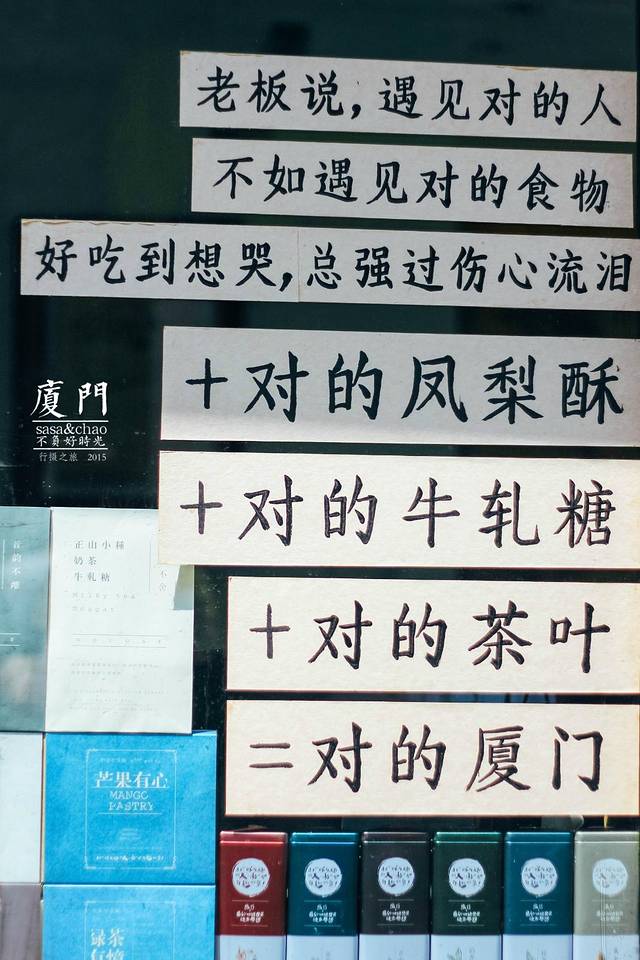 老板说，遇见对的人
不如遇见对的食物
好吃到想哭，总强过伤心流泪
＋对的凤梨酥
＋对的牛轧糖
＋对的茶叶
＝对的厦门
廈門
sasa&chao
不負好時光
行摄之旅 2015
正山小種
奶茶
牛軋糖
Milky tea
Nougat
不舍
芒果有心
MANGO
PASTRY
绿茶